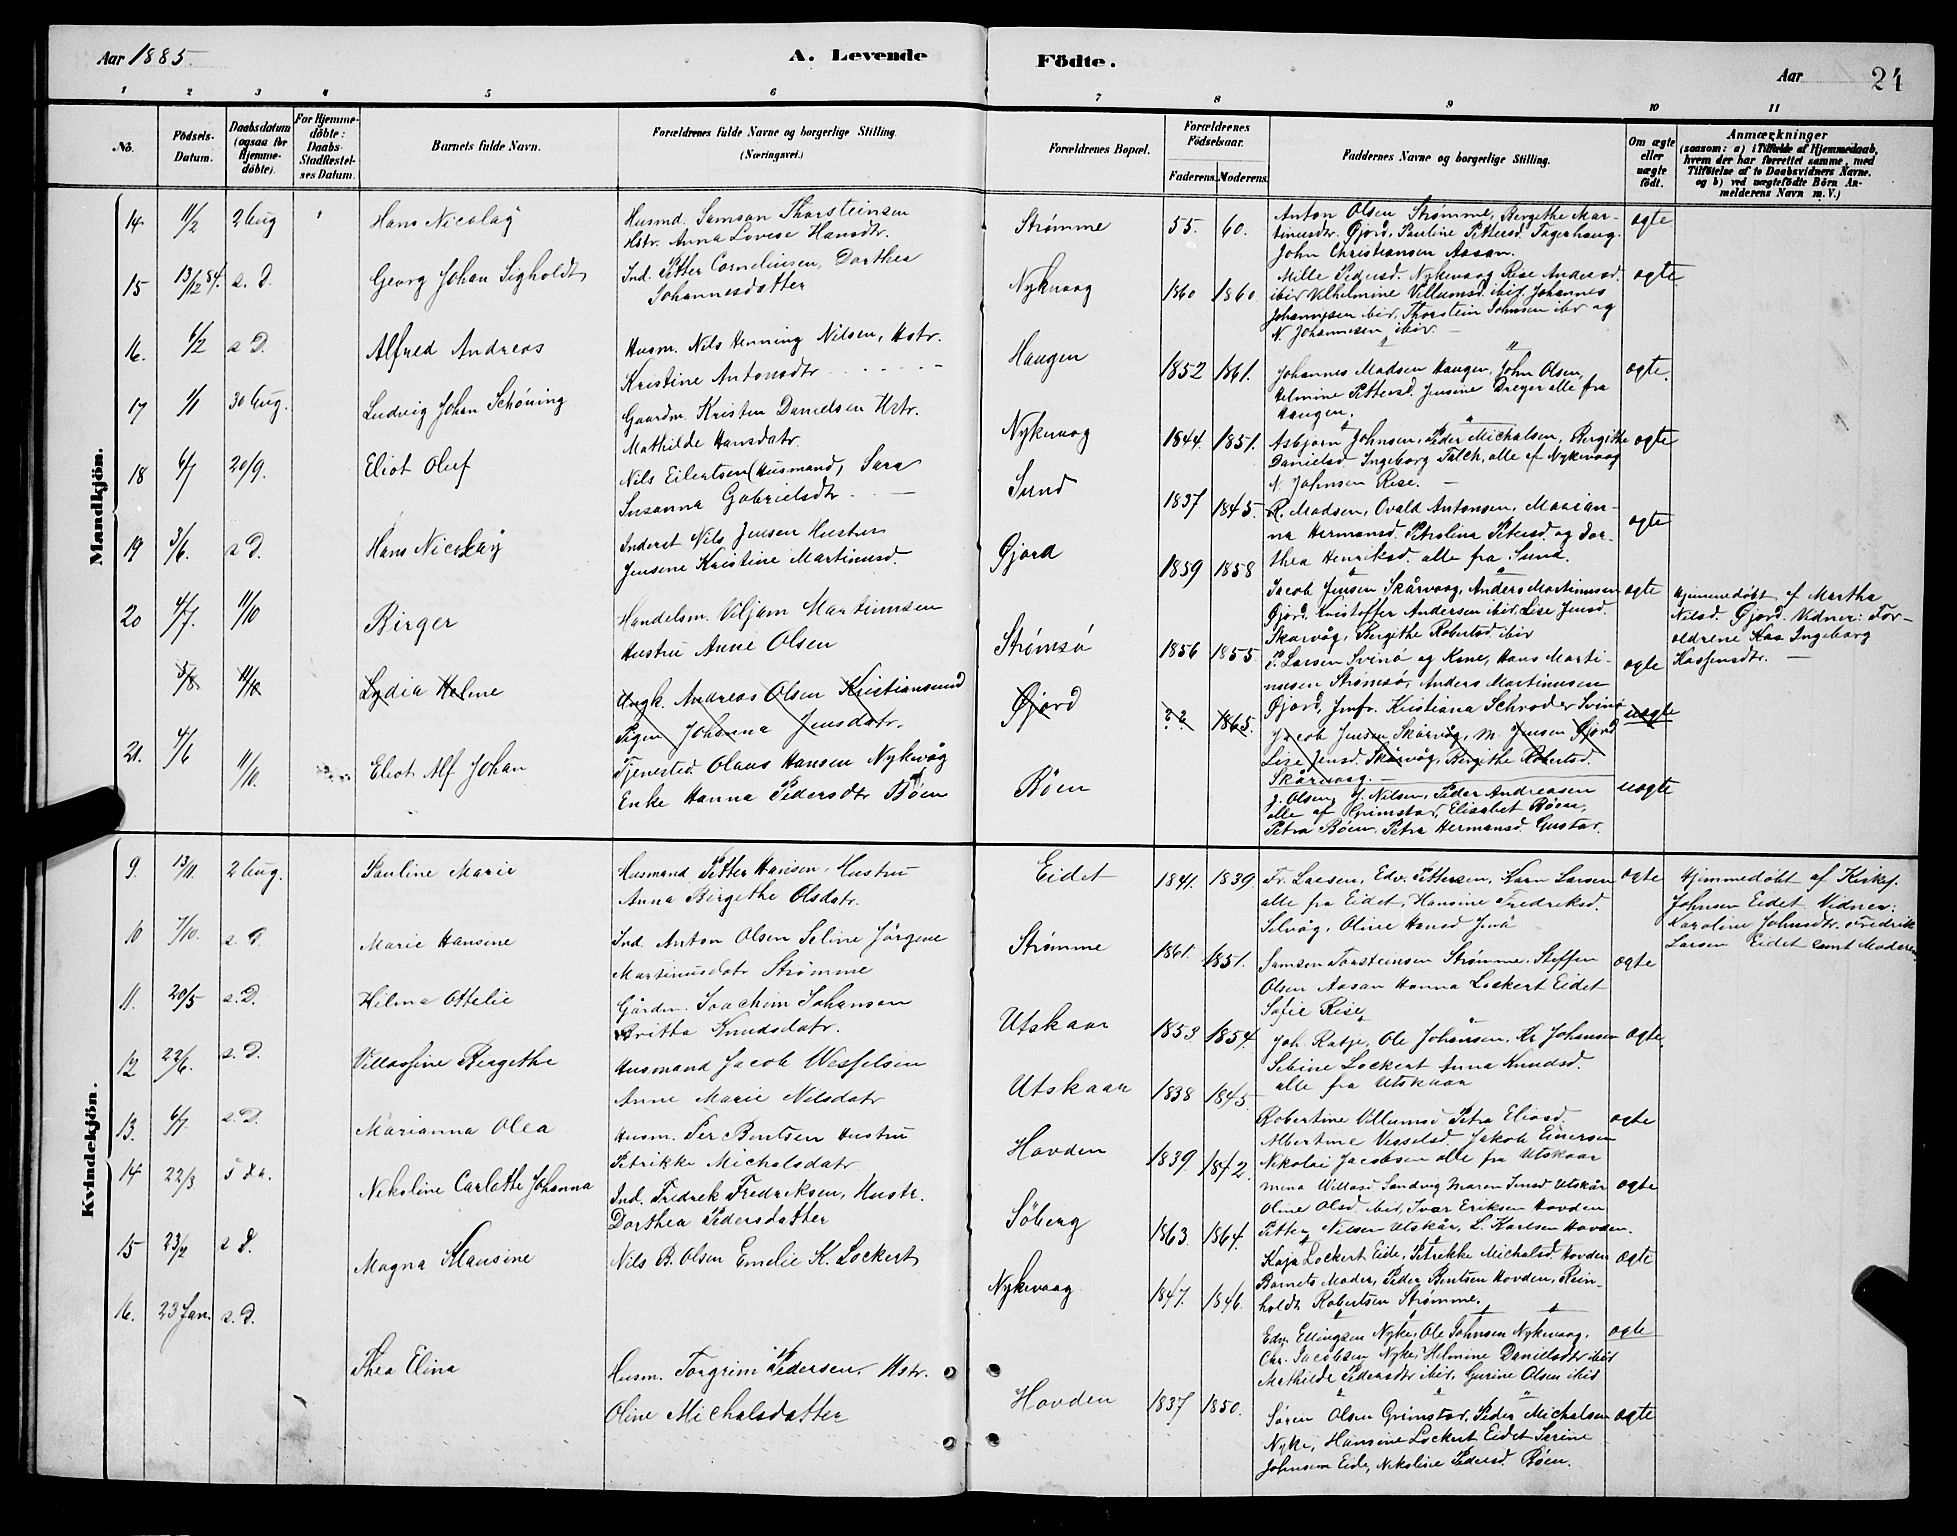 Aar 1885.
A. Levende Födte.
Aar
24
1 2 3 4 5 6 7 8 9 10 11
No.
Födsels-Datum.
Daabsdatum (ogsaa for Hjemme-döbte).
For Hjemme-döbte: Daabs-Stadfestel-ses Datum.
Barnets fulde Navn.
Forældrenes fulde Navne og borgerlige Stilling. (Næringsvei.)
Forældrenes Bopæl.
Forældrenes Födselsaar.
Faderens. Moderens.
Faddernes Navne og borgerlige Stilling.
Om ægte eller uægte födt.
Anmærkninger (saasom: a) i Tilfælde af Hjemmedaab, hvem der har forrettet samme, med Tilföielse af to Daabsvidners Navne. og b) ved uægtefödte Börn An-melderens Navn m.V.)
Mandkjön.
14. 11/2 2 Aug Hans Nicolaÿ
Husmd. Samson Thorsteinsen
Hstr. Anna Lovise Hansdtr.
Strømme 55. 60.
Anton Olsen Strømme, Bergithe Mar-
tinusdtr. Øjord, Pauline Pettersd. Fagerhaug.
John Christiansen Aasan.
ægte
15 13/12 84. s. D. Georg Johan Sigholdt
Ind. Petter Cornelinsen, Dorthea
Johannesdatter
Nykvaag 1860 1860.
Mille Pedersd. Nykevaag Rise Andersd.
ibir Vilhelmine Villumsd. ibif. Johannes
Johannesen ibir, Thorstein Johnsen ibir og
N. Johannesen ibir.
ægte
16. 6/2 s D. Alfred Andreas
Husm. Nils Henning Nilsen, Hstr.
Kristine Antonsdtr
Haugen 1852 1861.
Johannes Madsen Haugen, John Olsen,
Helmine Pettersd. Jensine Dreyer alle fra
Haugen.
ægte.
17 1/1 30 Aug. Ludvig Johan Schöning
Gaardm. Kristen Danielsen Hstr.
Mathilde Hansdatr.
Nykvaag 1844 1851.
Asbjørn Johnsen, Peder Michalsen, Bergithe
Danielsd. Ingeborg Falch, alle af Nykevaag
N. Johnsen Rise.
ægte
18 6/7 20/9. Eliot Oluf
Nils Eilertsen (Husmand), Sara
Susanna Gabrielsdtr
Sund 1837 1845.
R. Madsen, Ovald Antonsen, Marian-
na Hermansd. Petrolina Petersd. og Dor-
thea Henriksd. alle fra Sund.
ægte
19 3/6. s D. Hans Nicolaÿ
Inderst Nils Jensen Hustru
Jensene Kristine Martinusd.
Øjord 1859 1858
Jacob Jensen Skårvaag, Anders Martinusen
Øjord, Kristoffer Andersen ibir, Lise Jensd.
Skårvåg, Bergithe Robertsd ibir
ægte
Hjemmedøbt af Martha
Nilsd. Øjord. Vidner: For-
ældrene Kaa Ingeborg
Kassensdtr.
20 4/7. 11/10 Birger
Handelsm. Viljam Martinusen
Hustru Anne Olsen
Strømsø 1856 1855
P. Larsen Svinø og Kone, Hans Marti-
nusen Strømsø, Anders Martinusen
Øjord, Jmfr. Kristiana Schrøder Svinø
ægte
5/8 11/10 Lydia Helene
Ungk. Andreas Olsen Kristiansund
Pigen Johanna Jensdatr.
Øjord ?? 1865.
Jacob Jensen Skårvåg, M. Jensen Øjord
Lise Jensd. Skårvåg, Bergithe Robertsd.
Skårvaag.
uægte
21. 4/6 11/10. Eliot Alf Johan
Tjenested. Olaus Hansen Nykvåg
Enke Hanna Pedersdtr Bøen
Bøen
J. Olsen, J. Nilsen, Peder Andreasen
alle af Grimstar, Elisabet Bøen,
Petra Bøen, Petra Hermansd. Gustar.
uægte
Kvindekjön.
9. 13/11 2 Aug. Pauline Marie
Husmand Petter Hansen, Hustru
Anna Birgethe Olsdatr.
Eidet 1841. 1839
Fr. Larsen, Edv. Pettersen, Karn Larsen
alle fra Eidet, Hansine Fredriksd.
Selvåg, Oline Hansd Jenå
ægte
Hjemmedöbt af Kirkes.
Johnsen Eidet Vidner:
Karoline Johnsdtr. Fredrik
Larsen Eidet samt Moderen
10 7/10. s. D. Marie Hansine
Ind. Anton Olsen Seline Jörgene
Martinusdatr Strømme
Strømme 1861. 1851.
Samson Torsteinsen Strømme, Steffen
Olsen Aasan Hanna Lockert Eidet
Sofie Rise
ægte
11. 20/5 s. D. Hilma Ottelie
Gårdm. Joachim Johansen
Britta Knudsdatr.
Utskaar 1853 1854.
Joh. Ratje, Ole Johansen, Kr Johansen
Sebine Lockert Anna Knudsd.
alle fra Utskaar
ægte.
12 22/6. s. D. Villassine Bergethe
Husmand Jacob Wesselsen
Anne Marie Nilsdatr
Utskaar 1838 1845
Robertine Villumsd. Petra Eliasd.
Albertine Vesselsd. Jakob Einersen
Nikolai Jacobsen alle fra Utskaar
ægte
13. 6/7 s. D. Marianna Olea
Husm. Per Bentsen Hustru
Petrikke Michalsdatr
Hovden 1839 1842.
Mina Villasd. Sandvig Maren Jensd Utskår
Oline Olsd. ibir, Ivar Eriksen Hovden
Petter Nilsen Utskår, L. Karlsen Hovden.
ægte
14 22/3 Nikoline Carlotte Johanna
Ind. Fredrek Fredriksen, Hustr.
Dorthea Pedersdatter
Söberg 1863. 1864.
Kaja Lockert Eide, Petrikke Michalsd. Hovden
Barnets Moder, Peder Bentsen Hovden, Rein-
holdt Robertsen Strømme.
ægte
15 23/2 s D. Magna Klausine
Nils B. Olsen Emelie K. Lockert
Nykevaag 1847. 1846.
Edv. Ellingsen Nyke, Ole Johnsen Nykevaag.
Chr. Jacobsen Nyke, Helmine Danielsdtr ibir
Mathilde Pedersdtr ibir, Gurine Olsen ibid
ægte
16. 23 Jan. s. D. Thea Elina
Husm. Torgrim Pedersen, Hstr.
Oline Michalsdatter
Hovden 1837 1850.
Søren Olsen Grimstar, Peder Michalsen
Nyke, Hansine Lockert Eidet Serine
Johnsen Eide, Nikoline Pedersd. Bøen.
ægte